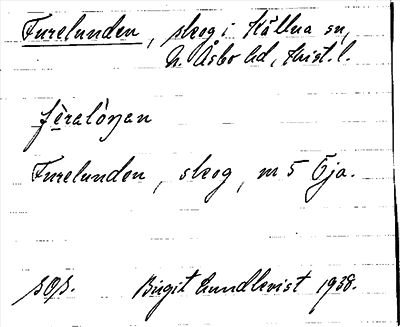 Furelunden, skog i Källna sn,
N. Åsbo hd, Krist. l.
fèralôŋan
Furelunden, skog, m 5 Öja.
sOp. Birgit Lundkvist 1938.